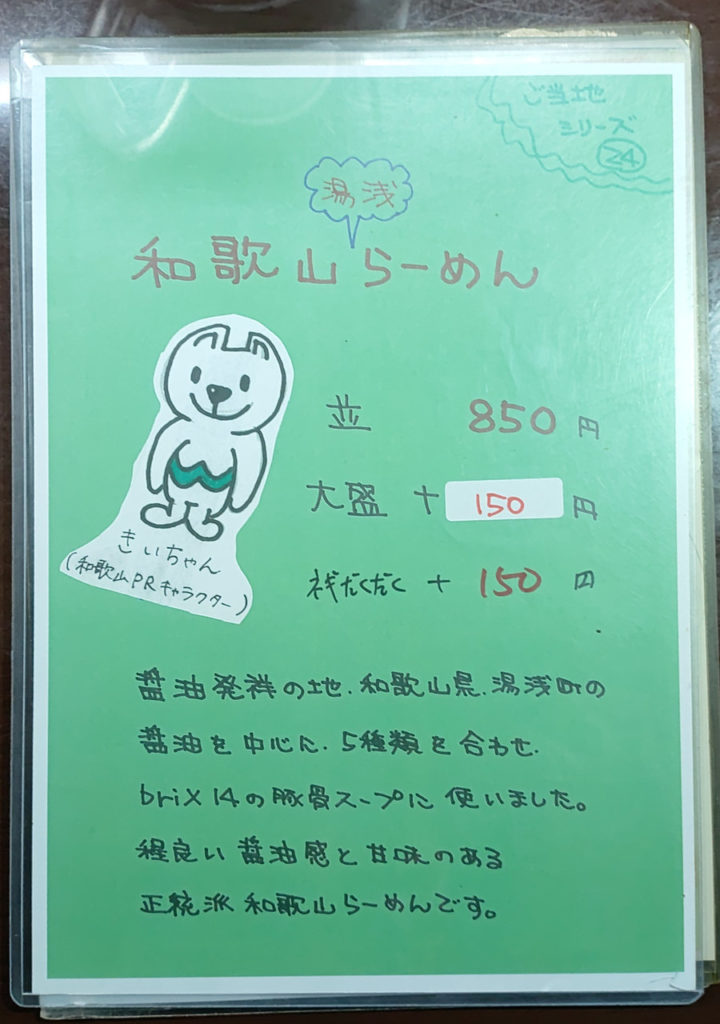 ご当地
シリーズ
24
湯浅
和歌山らーめん
並 850円
大盛 + 150円
ネギだくだく + 150円
きいちゃん
(和歌山PRキャラクター)
醤油発祥の地、和歌山県、湯浅町の
醤油を中心に、5種類を合わせ、
briX 14の豚骨スープに使いました。
程良い醤油感と甘味のある
正統派和歌山らーめんです。